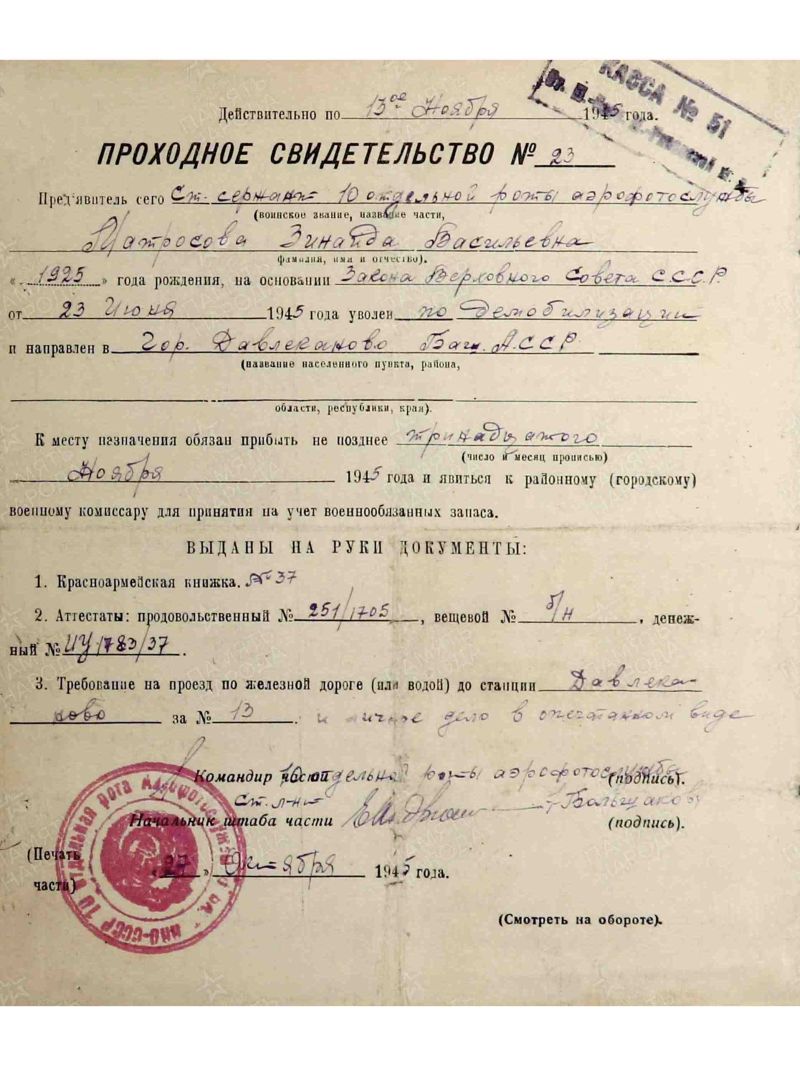 КАССА № 51
Действительно по 13ое Ноября 1945 года.
ПРОХОДНОЕ СВИДЕТЕЛЬСТВО № 23
Пред'явитель сего Ст. сержант 10 отдельной роты аэрофотослужбы
(воинское звание, название части,
Матросова Зинаида Васильевна
фамилия, имя и отчество).
« 1925 » года рождения, на основании Закона Верховного Совета С.С.С.Р
от 23 Июня 1945 года уволен по Демобилизации
и направлен в Гор. Давлеканово Баш. А.ССР.
(название населенного пункта, района,
области, республики, края).
К месту назначения обязан прибыть не позднее тринадцатого
(число и месяц прописью)
Ноября 1945 года и явиться к районному (городскому)
военному комиссару для принятия на учет военнообязанных запаса.
ВЫДАНЫ НА РУКИ ДОКУМЕНТЫ:
1. Красноармейская книжка. № 37
2. Аттестаты: продовольственный № 251/1705, вещевой № б/н, денеж-
ный № ИУ 1783/37.
3. Требование на проезд по железной дороге (или водой) до станции Давлека
ново за № 13. и личное дело в опечатанном виде
Командир части 10 отдельной роты аэрофотослужбы (подпись).
Ст. л-нт Большаков
Начальник штаба части (подпись).
(Печать части)
« 27 » Октября 1945 года.
(Смотреть на обороте).